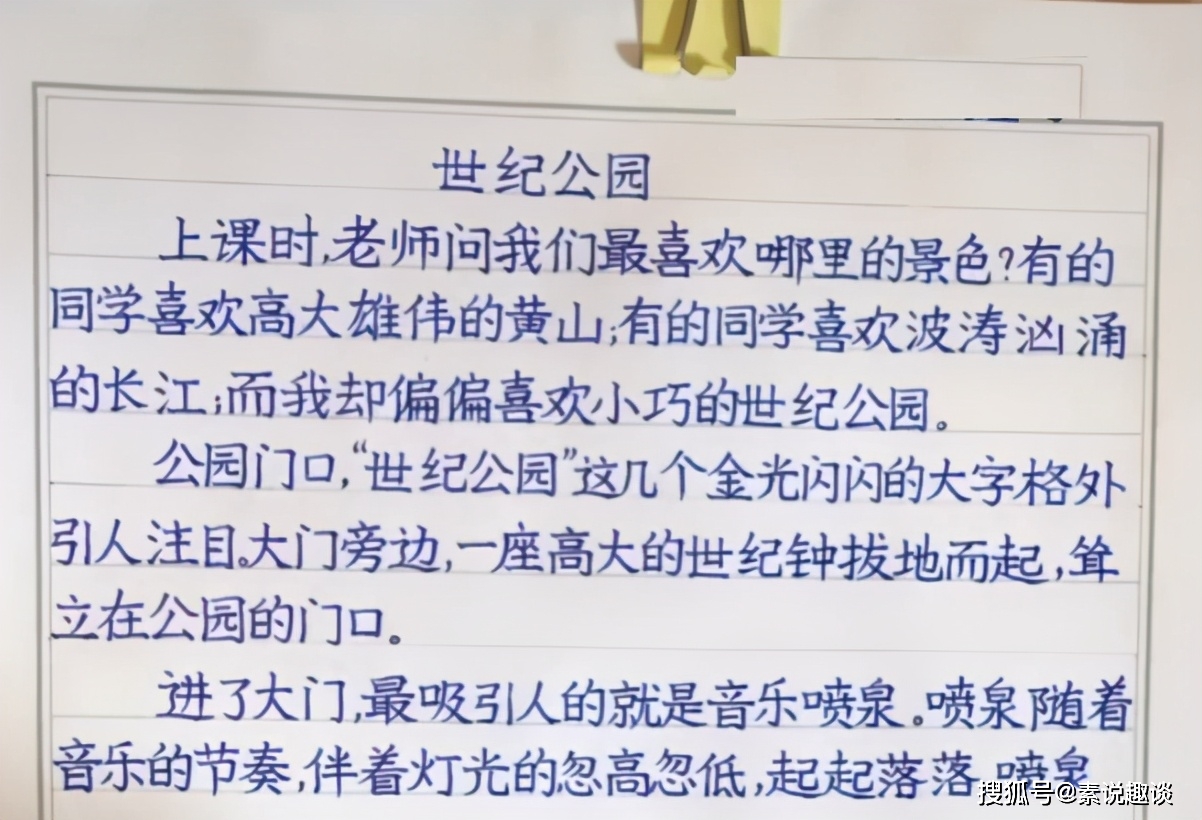 世纪公园
上课时,老师问我们最喜欢哪里的景色?有的
同学喜欢高大雄伟的黄山;有的同学喜欢波涛汹涌
的长江;而我却偏偏喜欢小巧的世纪公园。
公园门口,“世纪公园”这几个金光闪闪的大字格外
引人注目。大门旁边,一座高大的世纪钟拔地而起,耸
立在公园的门口。
进了大门,最吸引人的就是音乐喷泉。喷泉随着
音乐的节奏,伴着灯光的忽高忽低,起起落落,喷泉
搜狐号@素说趣谈